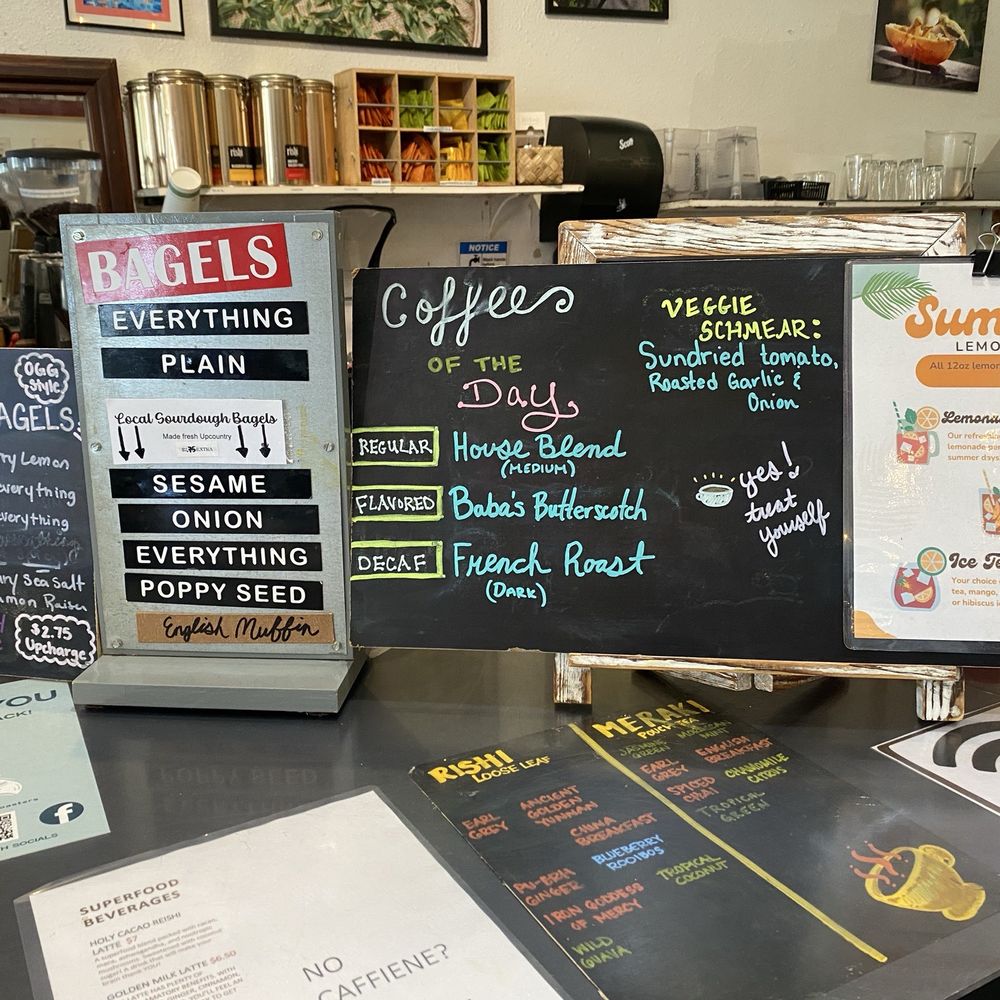 rishi
Scott
NOTICE
OGG
Style
AGELS
ry Lemon
everything
everything
ury Sea Salt
amon Raisin
$2.75
Upcharge
BAGELS
EVERYTHING
PLAIN
Local Sourdough Bagels
Made fresh Upcountry
SESAME
ONION
EVERYTHING
POPPY SEED
English Muffin
Coffee
OF THE
Day
REGULAR House Blend
(MEDIUM)
FLAVORED Baba's Butterscotch
DECAF French Roast
(DARK)
VEGGIE
SCHMEAR:
Sundried tomato,
Roasted Garlic &
Onion
yes!
treat
yourself
Sum
LEMO
All 12oz lemon
Lemona
Our refre
lemonade pa
summer days
Ice Te
Your choice
tea, mango,
or hibiscus i
YOU
ACK!
H SOCIALS
SUPERFOOD
BEVERAGES
HOLY CACAO REISHI
LATTE $7
GOLDEN MILK LATTE $6.50
NO
CAFFIENE?
RISHI
LOOSE LEAF
EARL
GREY
ANCIENT
GOLDEN
YUNNAN
CHINA
BREAKFAST
BLUEBERRY
ROOIBOS
PU-ERH
GINGER
TROPICAL
COCONUT
IRON GODDESS
OF MERCY
WILD
GUAVA
MERAKI
POUCH TEA
JASMINE
GREEN
MOROCCAN
MINT
EARL
GREY
ENGLISH
BREAKFAST
SPICED
CHAI
CHAMOMILE
CITRUS
TROPICAL
GREEN